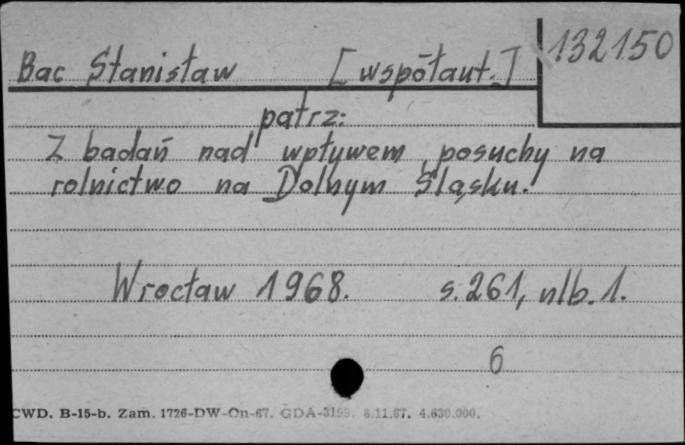 132150
Bac Stanisław [współaut.]
patrz:
Z badań nad wpływem posuchy na
rolnictwo na Dolnym Śląsku.
Wrocław 1968. s. 261, nlb. 1.
6
CWD. B-15-b. Zam. 1726-DW-On-67. GDA-3195. 8.11.67. 4.630.000.